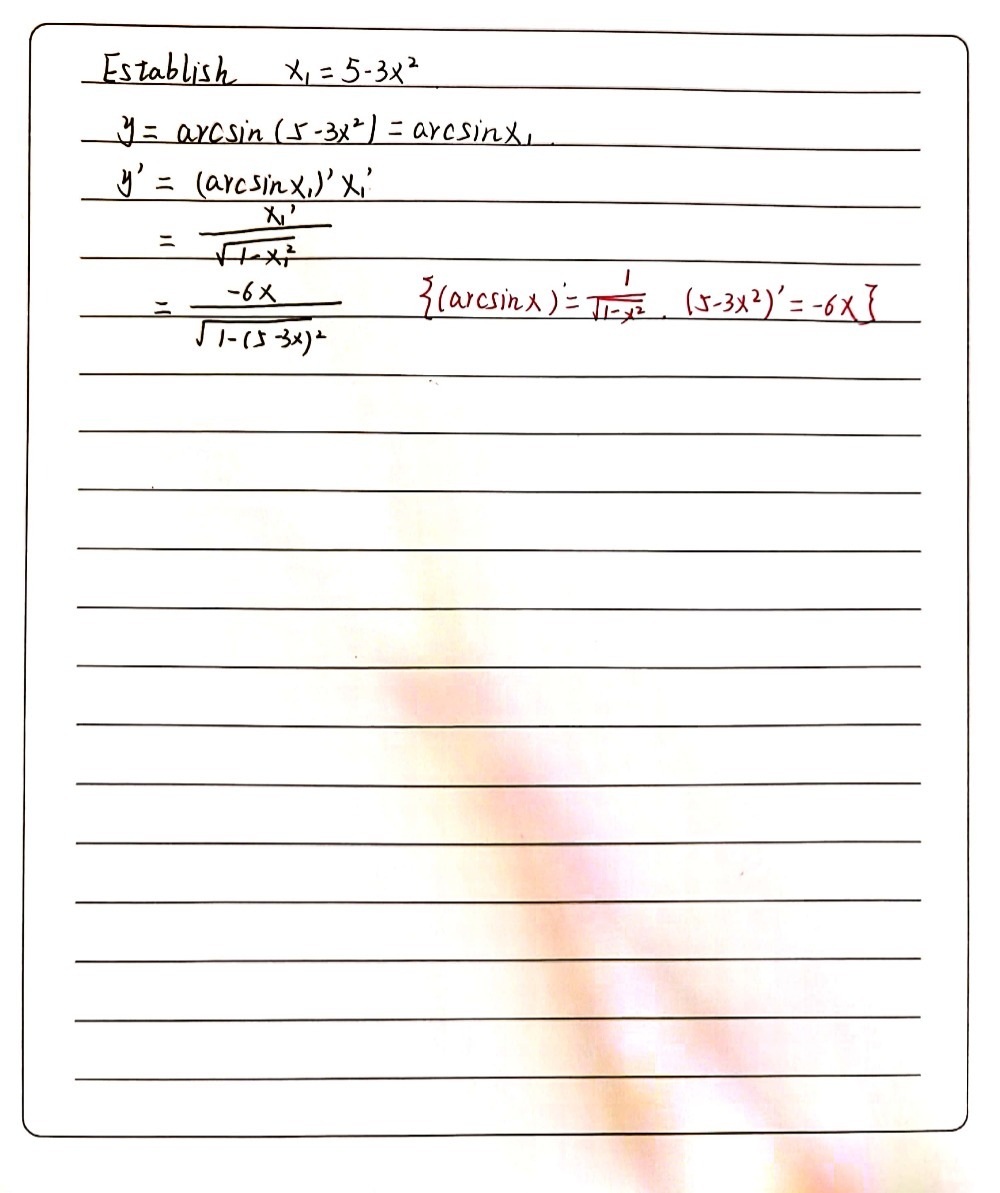 Establish x₁ = 5-3x²
y = arcsin (5-3x²) = arcsinx₁.
y' = (arcsinx₁)' x₁'
= x₁' / √(1-x₁²)
= -6x / √(1-(5-3x)²) {(arcsinx)' = 1/√(1-x²) . (5-3x²)' = -6x}